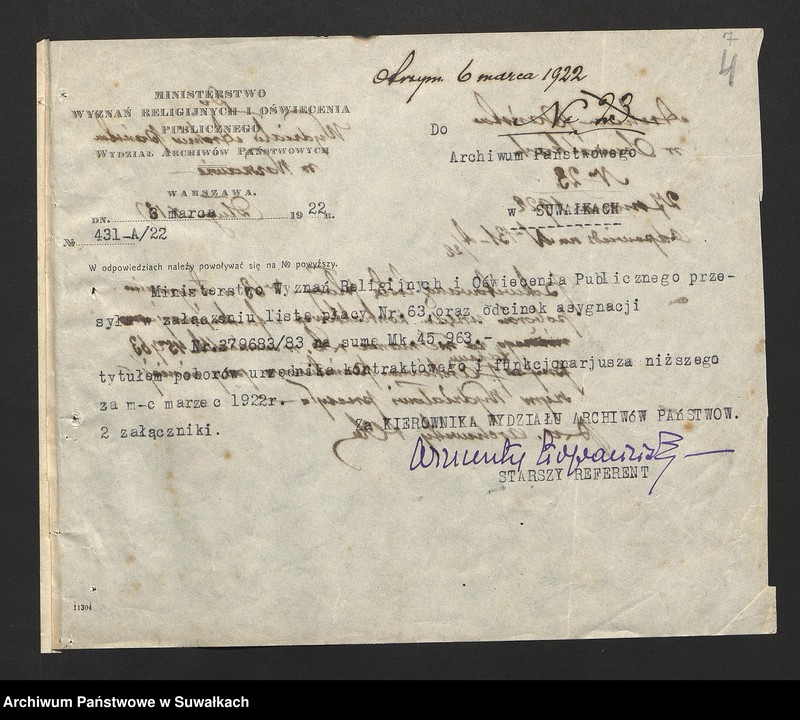 7
4
Otrzym. 6 marca 1922
MINISTERSTWO
WYZNAŃ RELIGIJNYCH I OŚWIECENIA
PUBLICZNEGO
WYDZIAŁ ARCHIWÓW PAŃSTWOWYCH
WARSZAWA,
DN. 3 marca 1922 R.
№ 431-A/22
W odpowiedziach należy powoływać się na № powyższy.
N. 23
Do
Archiwum Państwowego
w SUWAŁKACH
Ministerstwo Wyznań Religijnych i Oświecenia Publicznego prze-
syła w załączeniu listę płacy Nr. 63 oraz odcinek asygnacji
Nr. 379683/83 na sumę Mk. 45,963.-
tytułem poborów urzędnika kontraktowego i funkcjonarjusza niższego
za m-c marzec 1922r.
2 załączniki.
Za KIEROWNIKA WYDZIAŁU ARCHIWÓW PAŃSTWOW.
STARSZY REFERENT
11304
Archiwum Państwowe w Suwałkach